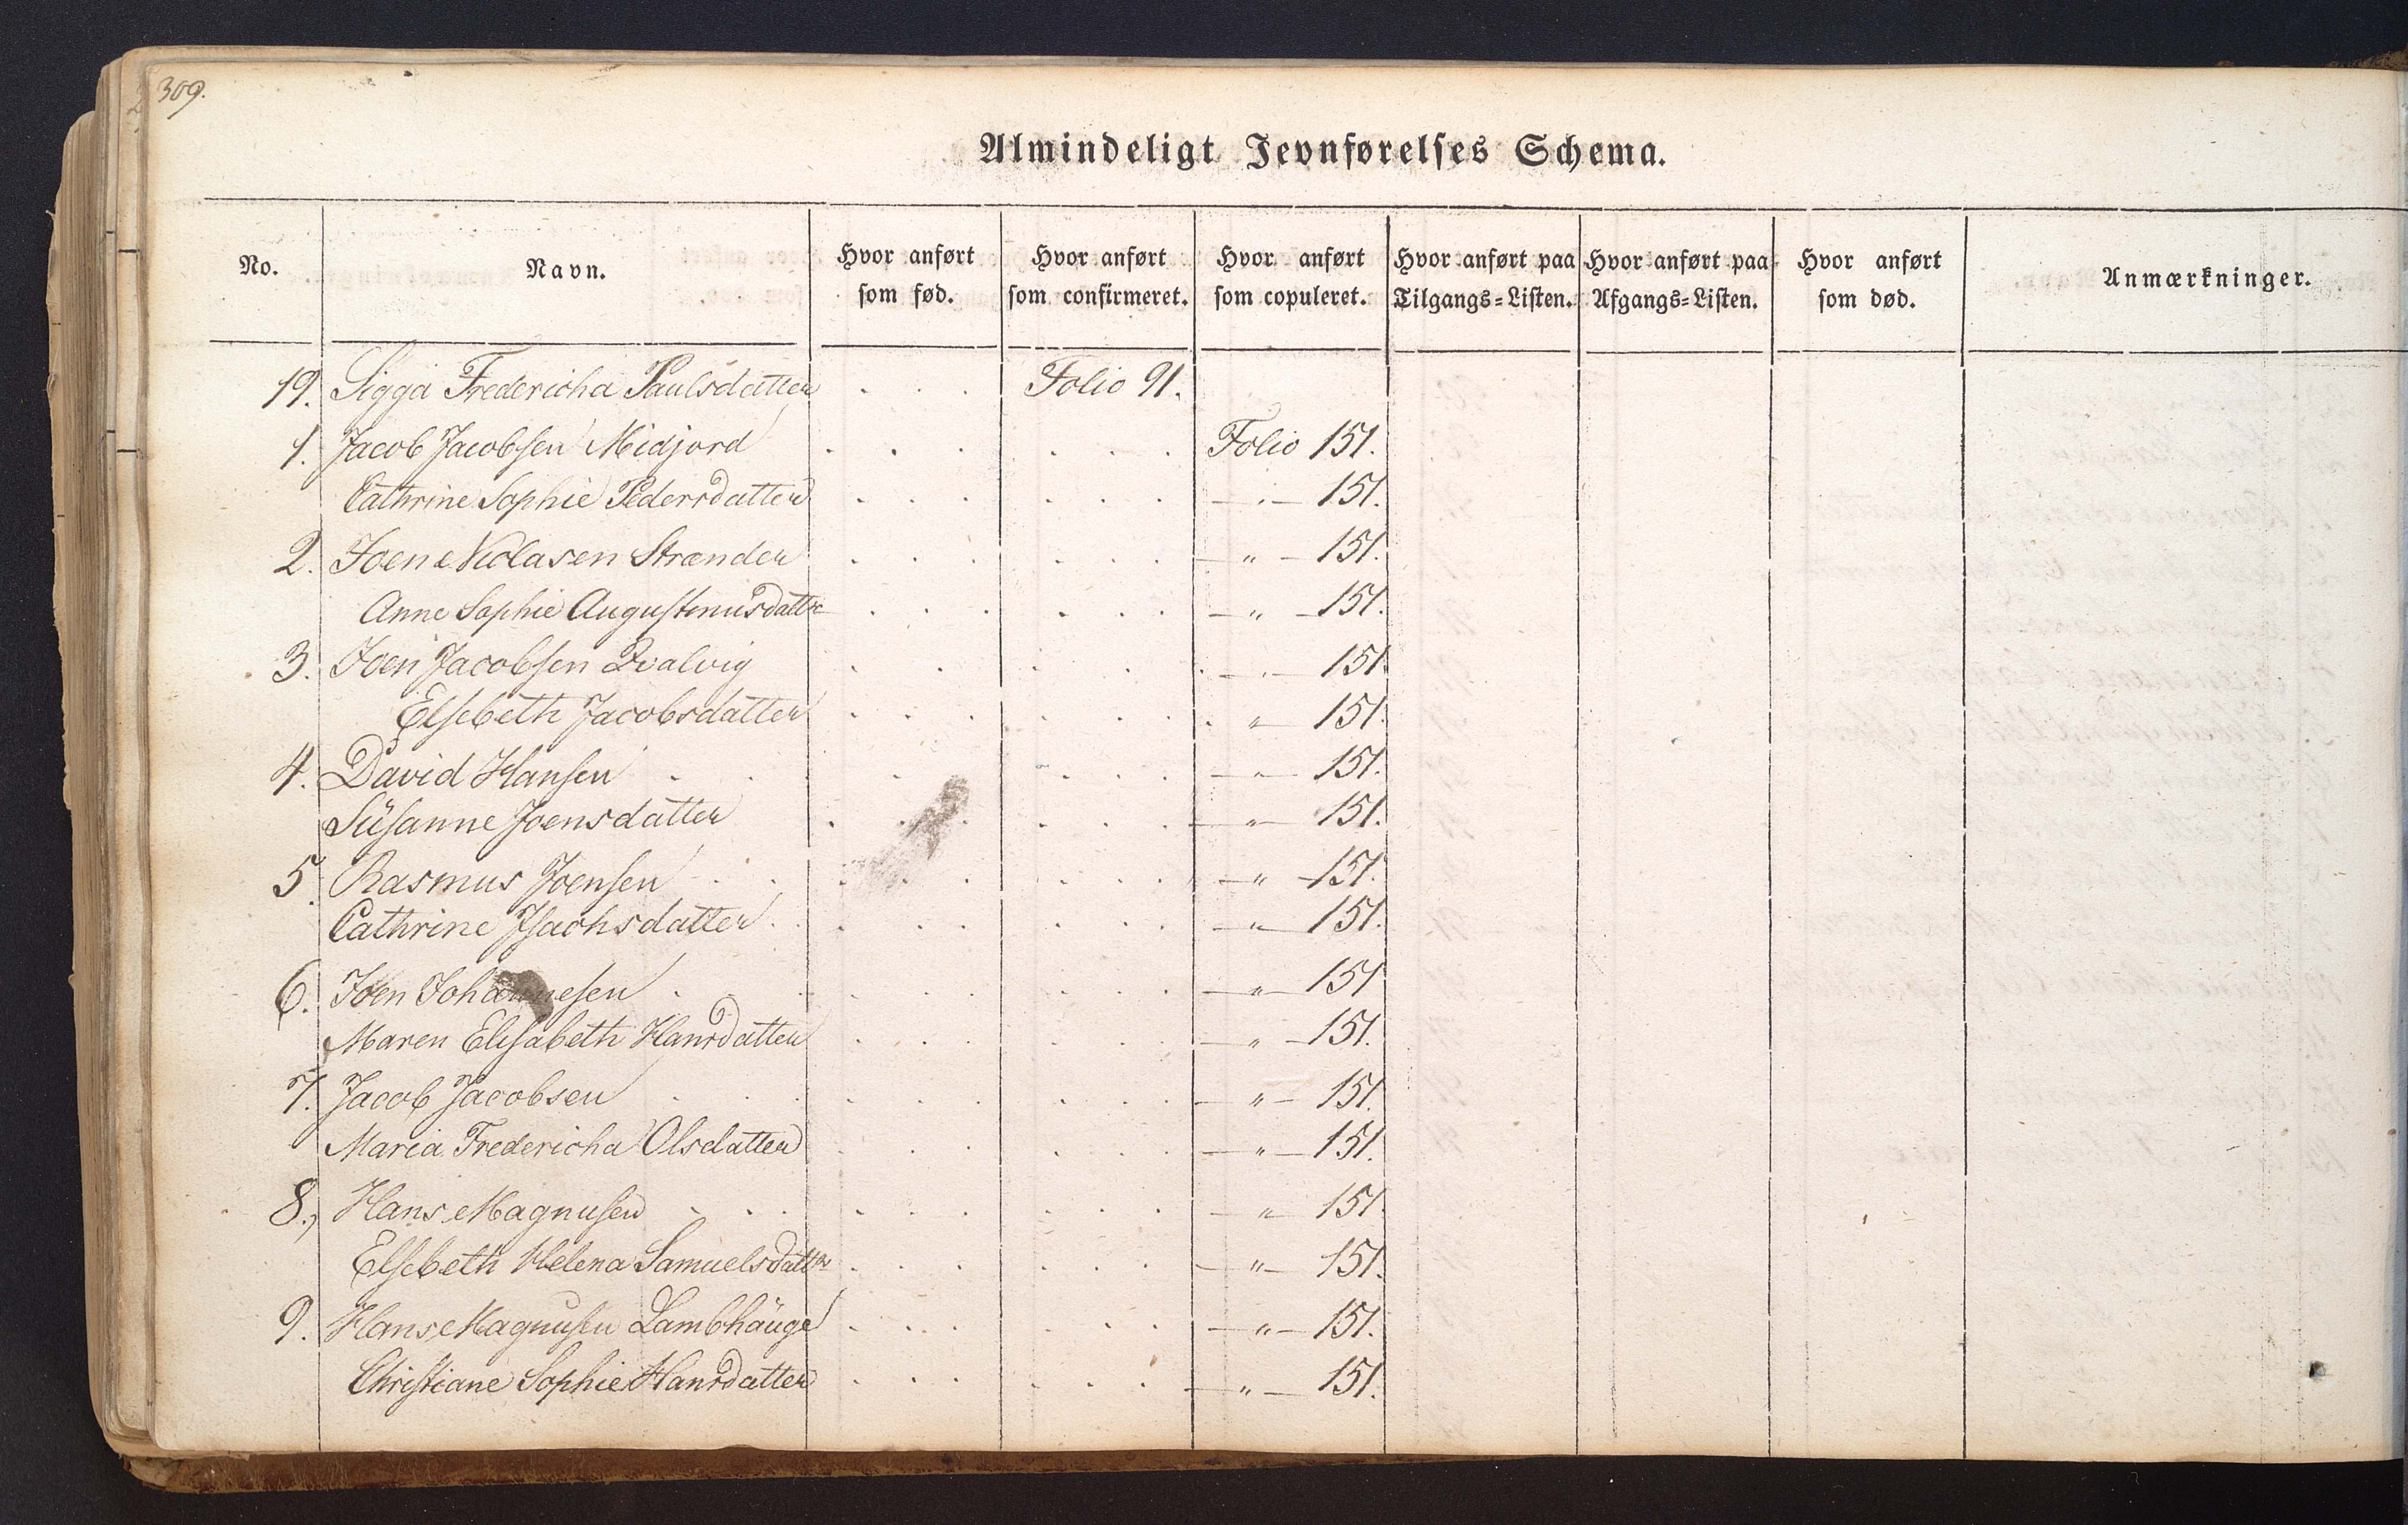 309.
Almindeligt Jevnførelses Schema.
No. Navn. Hvor anført som fød. Hvor anført som confirmeret. Hvor anført som copuleret. Hvor anført paa Tilgangs-Listen. Hvor anført paa Afgangs-Listen. Hvor anført som død. Anmærkninger.
19. Sigga Fredericha Paulsdatter . . . Folio 91.
1. Jacob Jacobsen Midjord . . . . . . Folio 151.
Cathrine Sophie Pedersdatter . . . . . . — " — 151.
2. Joen Nicolasen Strænder . . . . . . — " — 151.
Anne Sophie Augustinusdatter . . . . . . — " — 151.
3. Joen Jacobsen Qvalvig . . . . . . — " — 151.
Elsebeth Jacobsdatter . . . . . . — " — 151.
4. David Hansen . . . . . . — " — 151.
Süsanne Joensdatter . . . . . . — " — 151.
5. Rasmus Joensen . . . . . . — " — 151.
Cathrine Isachsdatter . . . . . . — " — 151.
6. Joen Johannesen . . . . . . — " — 151.
Maren Elisabeth Hansdatter . . . . . . — " — 151.
7. Jacob Jacobsen . . . . . . — " — 151.
Maria Fredericha Olsdatter . . . . . . — " — 151.
8., Hans Magnusen . . . . . . — " — 151.
Elsebeth Helena Samuelsdatter . . . . . . — " — 151.
9. Hans Magnusen Lambhäuge . . . . . . — " — 151.
Christiane Sophie Hansdatter . . . . . . — " — 151.